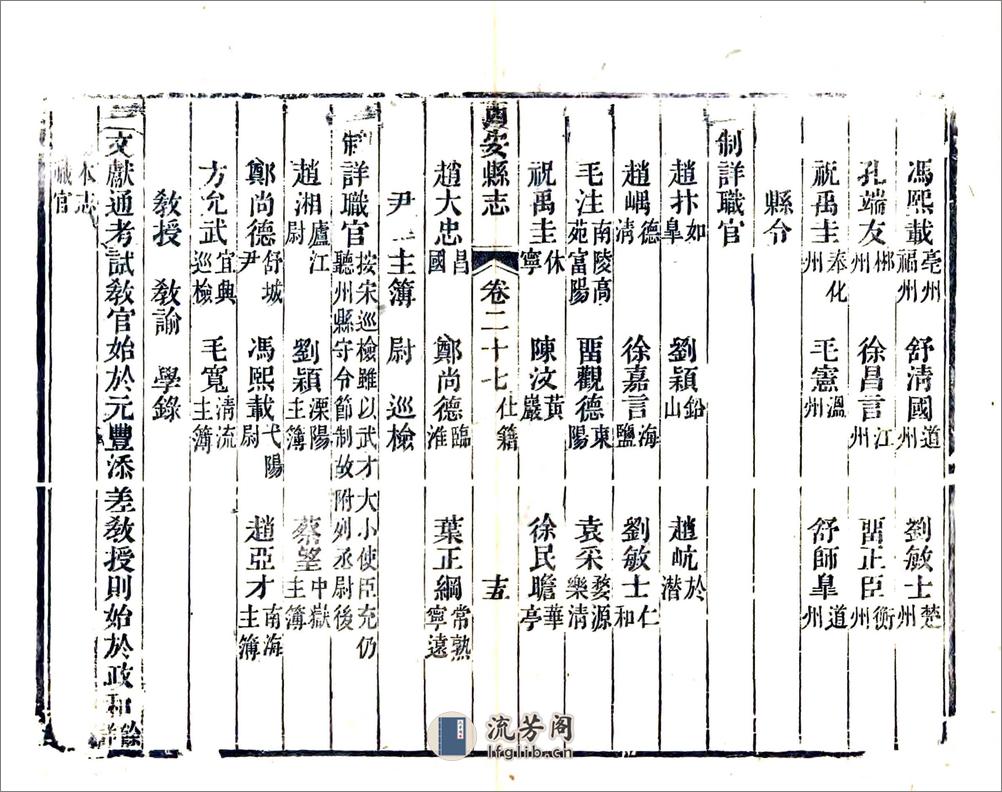 馮熙載亳州福州 舒清國道州 劉敏士楚州
孔端友郴州 徐昌言江州 畱正臣衡州
祝禹圭奉化州 毛憲溫州 舒師臯道州
縣令
制詳職官
趙抃如臯 劉穎鉛山 趙㞳於潛
趙嵎德清 徐嘉言海鹽 劉敏士仁和
毛注南陵高苑富陽 畱觀德東陽 袁采婺源樂清
祝禹圭休寧 陳汶黃巖 徐民瞻華亭
西安縣志 卷二十七 仕籍 十五
趙大忠昌國 鄭尚德臨淮 葉正綱常熟寧遠
尹 主簿 尉 巡檢
制詳職官按宋巡檢雖以武才大小使臣充仍聽州縣守令節制故附列丞尉後
趙湘廬江尉 劉穎溧陽主簿 蔡望中嶽主簿
鄭尚德舒城尹 馮熙載弋陽尉 趙亞才南海主簿
方允武宜興巡檢 毛寬清流主簿
教授 教諭 學錄
文獻通考試教官始於元豐添差教授則始於政和餘詳
本志職官
流芳阁
lfglib.cn